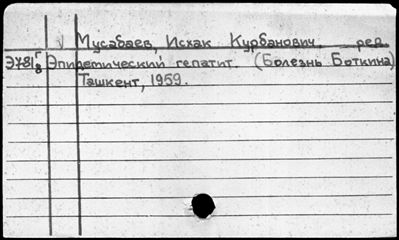 Мусабаев, Исхак Курбанович, ред.
Э781/8 Эпидемический гепатит. (Болезнь Боткина)
Ташкент, 1959.